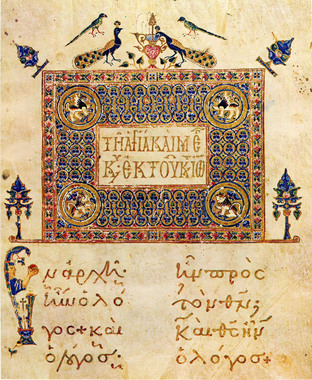 ΤΗ ΑΓΙΑ ΚΑΙ ΜΕΓ
ΚΥ ΕΚ ΤΟΥ Κ ΙΩ
Ἐν ἀρχῆ
ἦν ὁ λό
γος + καὶ
ὁ λόγος
ἦν πρὸς
τὸν θν;
καὶ θς ἦν
ὁ λόγος +